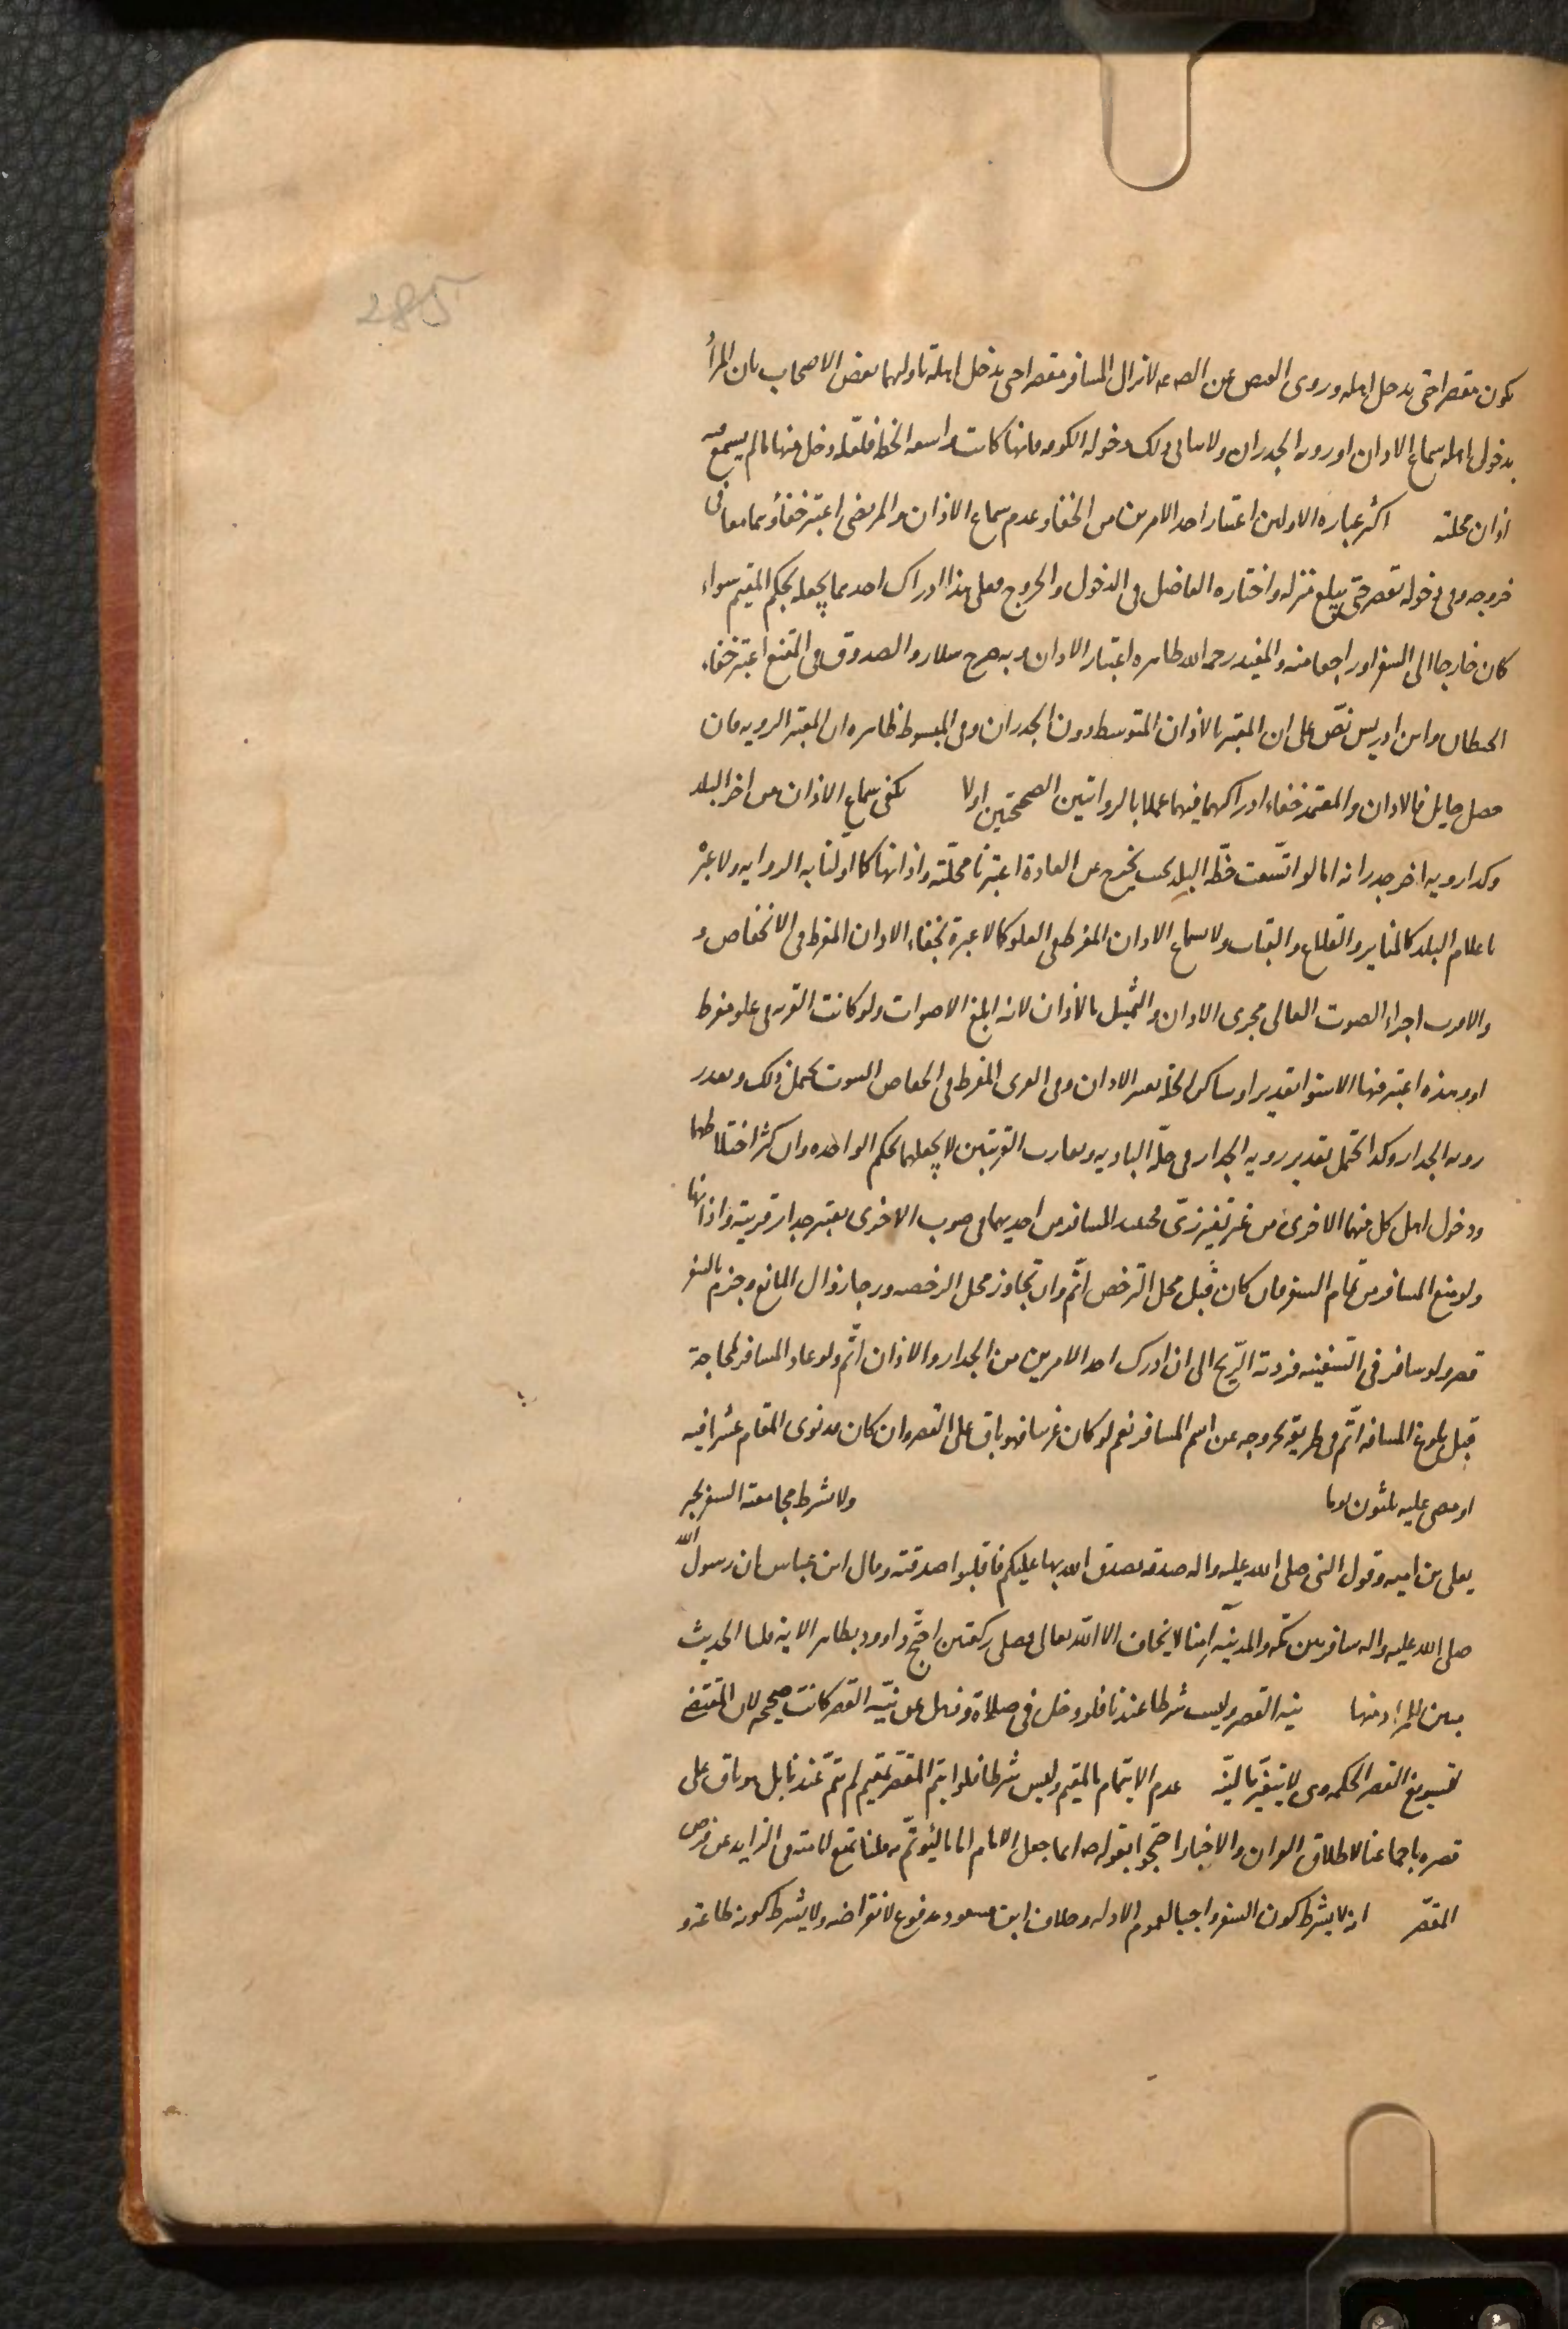 285
يكون مقصرا حتى يدخل اهله وروى العيص عن الصه عه لا يزال المسافر مقصرا حتى يدخل اهله تاولهما بعض الاصحاب بان المراد
بدخول اهله سماع الاذان او رويه الجدران ولا ينافى ذلك دخوله الكوفه فانها كانت واسعه الخطه فلعله دخل منها ما لم يسمع فيه
اذان محلته اكثر عباره الاولين اعتبار احد الامرين من الخفا وعدم سماع الاذان والمرتضى اعتبر خفاؤهما معا فى
خروجه وفى دخوله يقصر حتى يبلغ منزله واختاره الفاضل فى الدخول والخروج فعلى هذا ادراك احدهما يجعله بحكم المقيم سواء
كان خارجا الى السفر او راجعا منه والمفيد رحمه الله ظاهره اعتبار الاذان وبه صرح سلار والصدوق فى المقنع اعتبر خفاء
الحيطان وابن ادريس نصّ على ان المعتبر بالاذان المتوسط دون الجدران وفى المبسوط ظاهره ان المعتبر الرويه فان
حصل حايل فالاذان والمعتمد خفاء ادراكهما فيهما عملا بالروايتين الصحيحتين اولا يكفى سماع الاذان من اخر البلد
وكذا رويه اخر جدرانه اما لو اتّسعت خطّه البلد بحيث يخرج عن العادة اعتبرنا محلّته واذانها كما اوّلنا به الروايه ولا عبرة
باعلام البلد كالمناير والقلاع والقباب ولا سماع الاذان المفرط فى العلو كما لا عبرة بخفاء الاذان المفرط فى الانخفاض و
والاقرب اجراء الصوت العالى مجرى الاذان والتمثيل بالاذان لانه ابلغ الاصوات ولو كانت القريه فى علو مفرط
او وهده اعتبر فيها الاستوا تقديرا وساكن الحله يعتبر الاذان وفى القرى المفرط فى انخفاض البيوت يحتمل ذلك وبعدد
رويه الجدار وكذا يحتمل تقدير رويه الجدار فى حلّه الباديه وتقارب القريتين لا يجعلهما بحكم الواحده وان كثر اختلاطهما
ودخول اهل كل منهما الاخرى من غير تغيّر زىّ فحينئذ المسافر من احديهما فى صوب الاخرى يعتبر جدار قريته واذانها
ولو منع المسافر من تمام السفر فان كان قبل محل الترخص اتّم وان تجاوز محل الرخصه ورجا زوال المانع وجزم بالسفر
قصر ولو سافر فى السّفينه فردته الرّيح الى ان ادرك احد الامرين من الجدار والاذان اتّم ولو عاد المسافر لحاجة
قبل بلوغ المسافه اتّم فى طريقه لخروجه عن اسم المسافر نعم لو كان غرسا فهو باق على القصر وان كان قد نوى المقام عشرا فيه
او مضى عليه ثلثون يوما ولا يشترط مجامعته السفر لخبر
يعلى بن اميه وقول النبى صلى الله عليه واله صدقه تصدق الله بها عليكم فاقبلوا صدقته وقال ابن عباس ان رسول الله
صلى الله عليه واله سافر بين مكّه والمدينه آمنا لا يخاف الا الله تعالى فصلى ركعتين احتّج داوود بظاهر الاية قلنا الحديث
مبين للمراد منها نيه القصر وليست شرطا عندنا فلو دخل فى صلاة وذهل عن نيّه القصر كانت صحيحه لان المقتضى
لتسويغ القصر الحكمه وهى لا يتغيّر بالنيّه عدم الايتمام بالمقيم وليس شرطا فلو ايتم المقصّر بمقيم لم يتمّ عندنا بل هو باق على
قصره باجماعنا لاطلاق القران والاخبار احتجوا بقوله ص انما جعل الامام اماما ليؤتمّ به قلنا تمنع لامته فى الزايد عن فرض
المقصّر انه لا يشترط كون السفر واجبا لعموم الادله وخلاف ابن مسعود مدفوع لانقراضه ولا يشترط كونه طاعة و